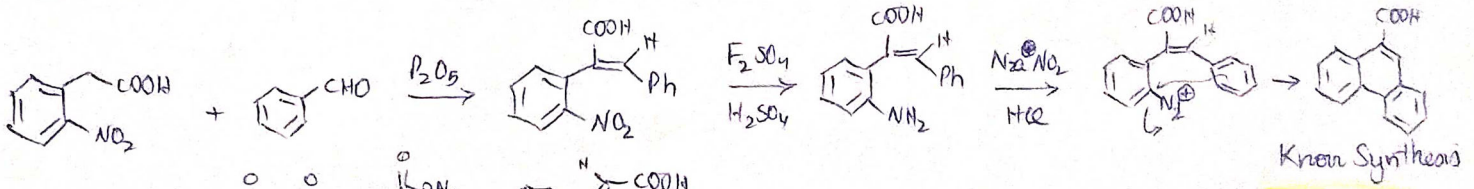 COOH
+
NO2
CHO
P2O5
COOH
H
Ph
NO2
F2SO4
H2SO4
COOH
H
Ph
NH2
Na⊕NO2
HCl
COOH
H
N2⊕
COOH
Knorr Synthesis
O O O
H COOH